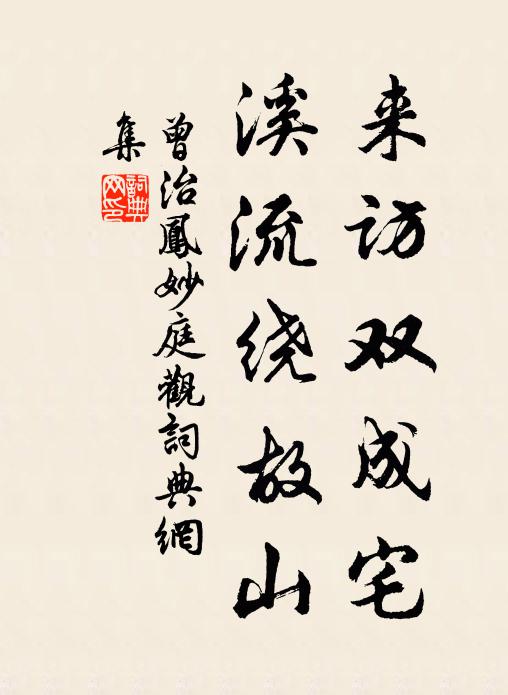 来访双成宅
溪流绕故山
曾治鳳妙庭觀詞典網
集
詞典網印